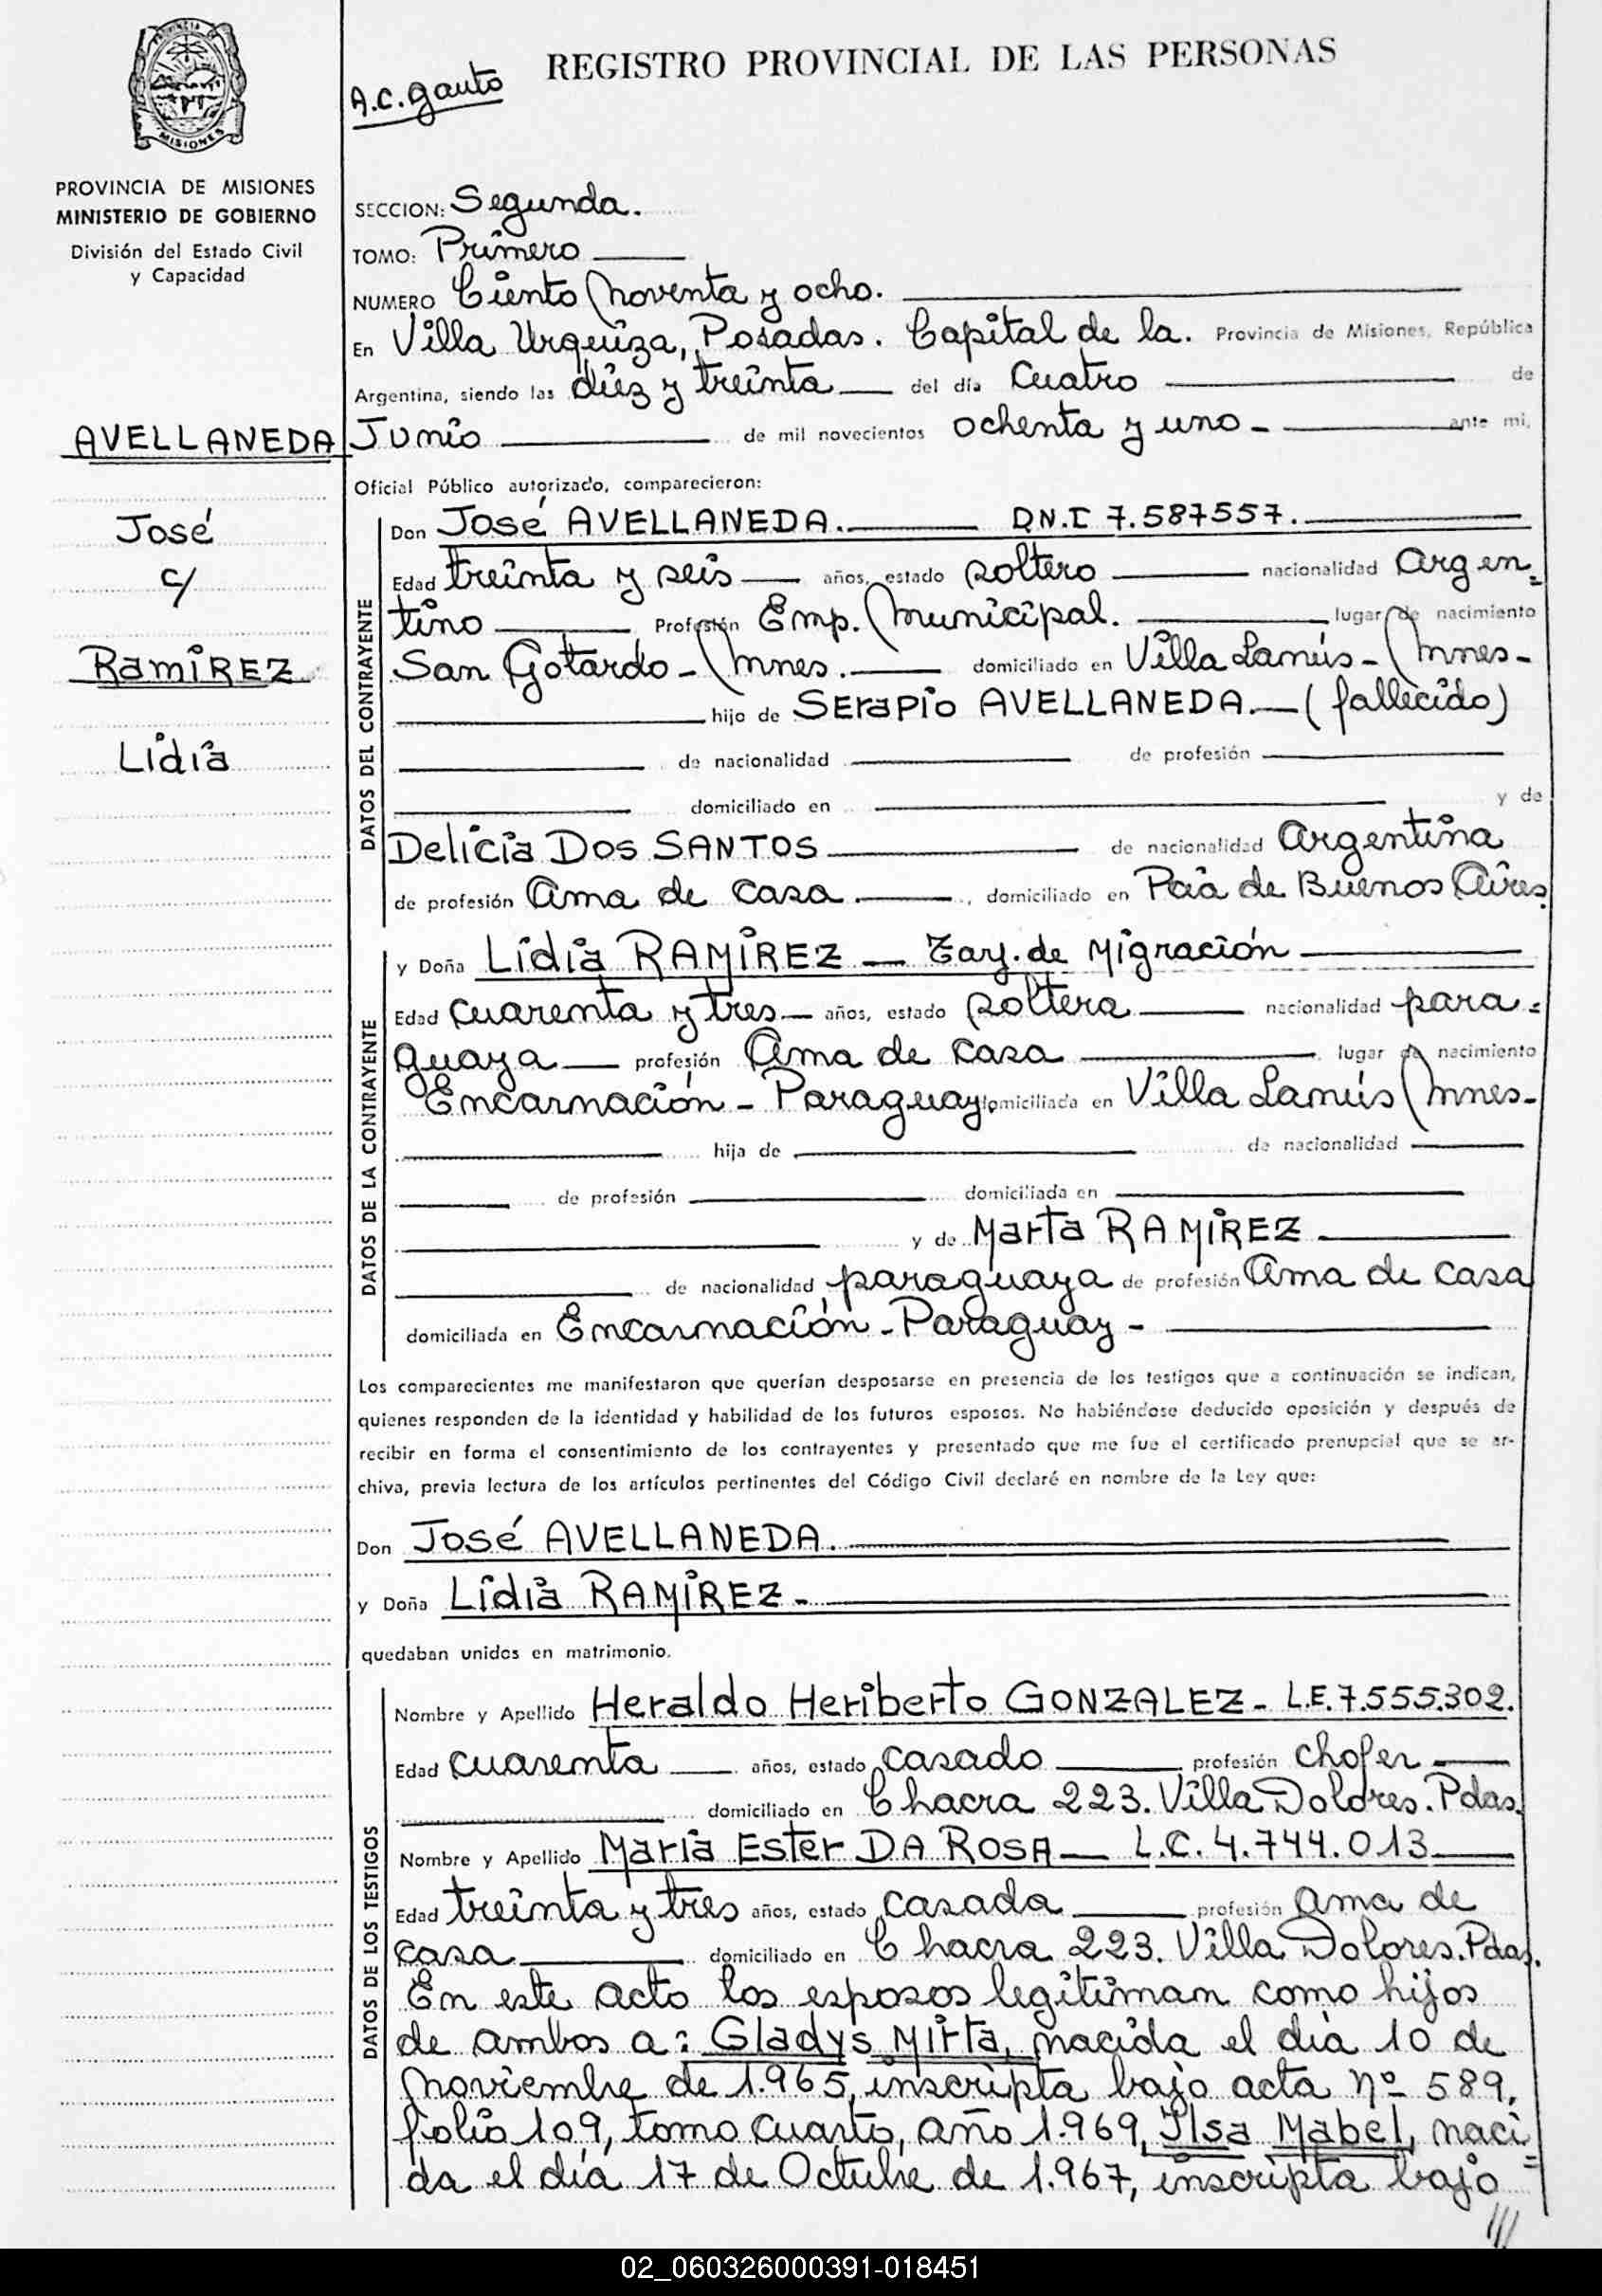 REGISTRO PROVINCIAL DE LAS PERSONAS
A.C. Gauto
MISIONES
PROVINCIA DE MISIONES
MINISTERIO DE GOBIERNO
División del Estado Civil
y Capacidad
AVELLANEDA
José
c/
RAMIREZ
Lidia
SECCION: Segunda.
TOMO: Primero
NUMERO Ciento Noventa y ocho.
En Villa Urquiza, Posadas. Capital de la. Provincia de Misiones, República
Argentina, siendo las diez y treinta del día Cuatro de
Junio de mil novecientos ochenta y uno - ante mi,
Oficial Público autorizado, comparecieron:
DATOS DEL CONTRAYENTE
Don José AVELLANEDA. D.N.I 7.587557.
Edad treinta y seis años, estado soltero nacionalidad Argen=
tino Profesión Emp. Municipal. lugar de nacimiento
San Gotardo - Mnes. domiciliado en Villa Lanús - Mnes-
hijo de SERAPIO AVELLANEDA. (fallecido)
de nacionalidad de profesión
domiciliado en y de
Delicia DOS SANTOS de nacionalidad Argentina
de profesión Ama de casa. , domiciliado en Pcia de Buenos Aires.
DATOS DE LA CONTRAYENTE
y Doña Lidia RAMIREZ - Tarj. de Migración
Edad cuarenta y tres años, estado soltera nacionalidad para=
guaya profesión Ama de casa lugar de nacimiento
Encarnación - Paraguay domiciliada en Villa Lanús Mnes-
hija de de nacionalidad
de profesión domiciliada en
y de Marta RAMIREZ
de nacionalidad paraguaya de profesión Ama de casa
domiciliada en Encarnación - Paraguay -
Los comparecientes me manifestaron que querían desposarse en presencia de los testigos que a continuación se indican,
quienes responden de la identidad y habilidad de los futuros esposos. No habiéndose deducido oposición y después de
recibir en forma el consentimiento de los contrayentes y presentado que me fue el certificado prenupcial que se ar-
chiva, previa lectura de los artículos pertinentes del Código Civil declaré en nombre de la Ley que:
Don José AVELLANEDA.
y Doña Lidia RAMIREZ -
quedaban unidos en matrimonio.
DATOS DE LOS TESTIGOS
Nombre y Apellido Heraldo Heriberto GONZALEZ - L.E. 7.555.302.
Edad cuarenta años, estado casado profesión chofer
domiciliado en Chacra 223. Villa Dolores. Pdas.
Nombre y Apellido Maria Ester DA ROSA L.C. 4.744.013
Edad treinta y tres años, estado casada profesión ama de
casa domiciliado en Chacra 223. Villa Dolores. Pdas.
En este acto los esposos legitiman como hijos
de ambos a: Gladys Mirta, nacida el día 10 de
Noviembre de 1.965, inscripta bajo acta nº 589,
folio 109, tomo cuarto, año 1.969, Ilsa Mabel, naci=
da el día 17 de Octubre de 1.967, inscripta bajo
///
02_060326000391-018451